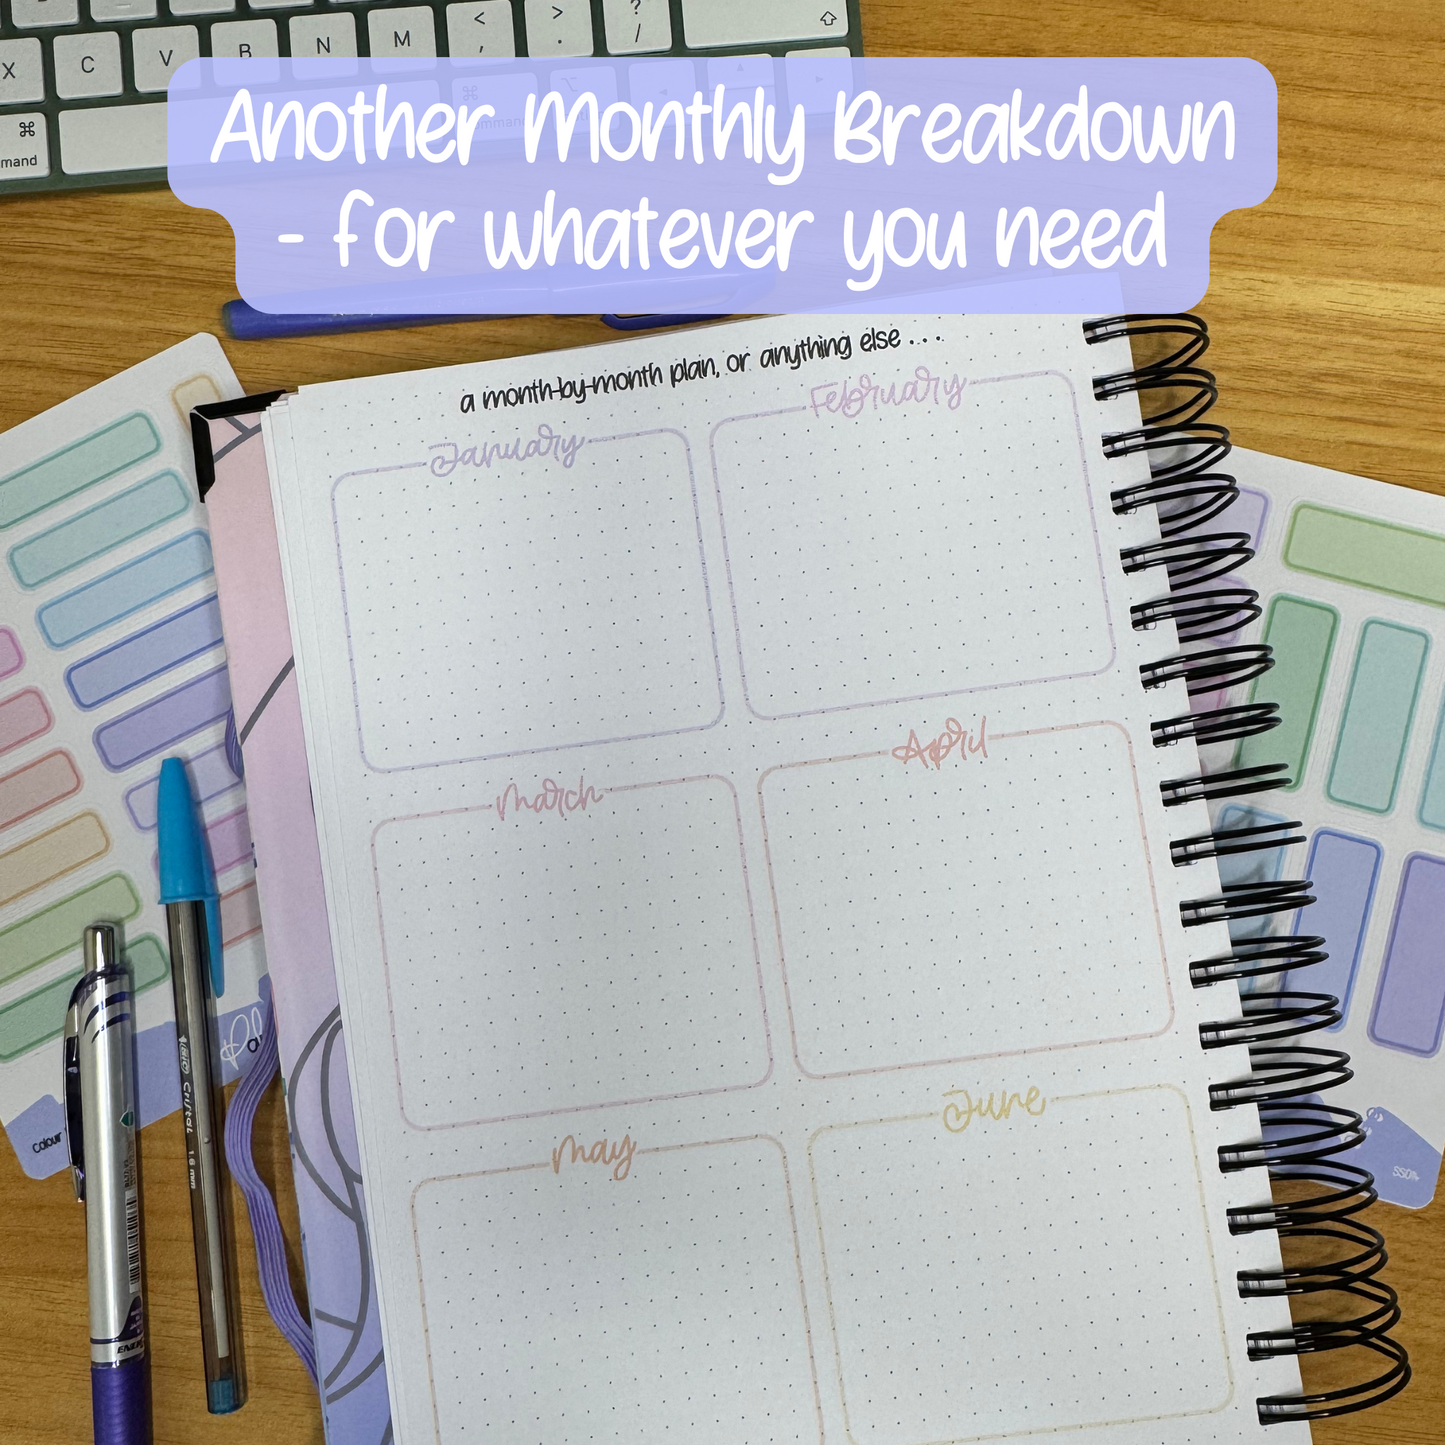 X C V B N M < , > . ? /
⌘
mand
Another Monthly Breakdown
- for whatever you need
a month-by-month plan, or anything else . . .
January
February
March
April
May
June
BIC Cristal 1.6 mm
Colour